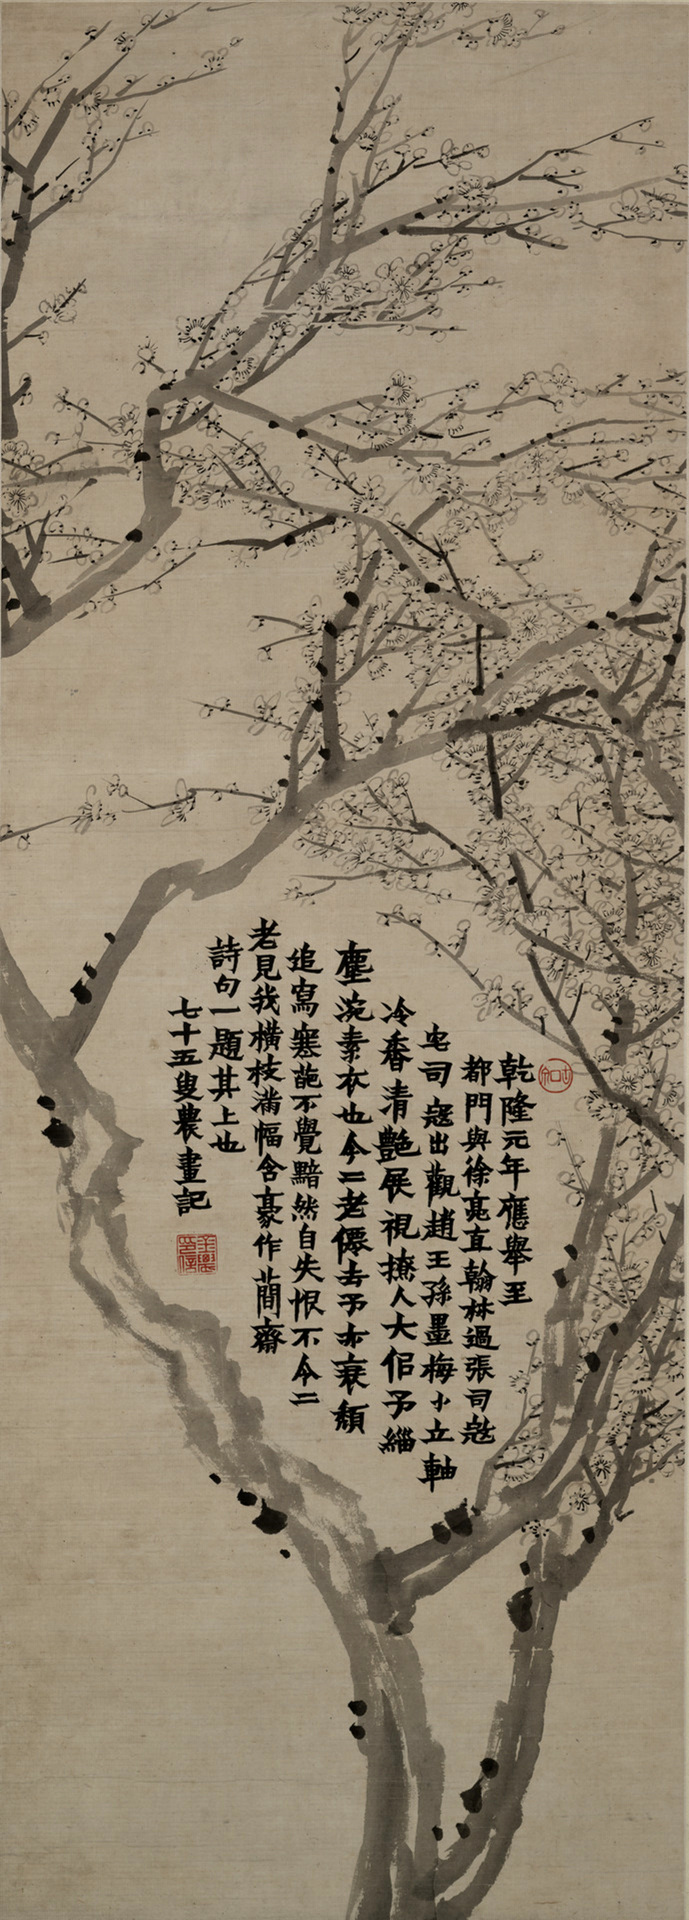 乾隆元年應舉至
都門與徐亮直翰林過張司寇
宅司寇出觀趙王孫墨梅小立軸
冷香清艷展視撩人大佀予緇
塵涴素衣也今二老僊去予亦衰頹
追寫寒葩不覺黯然自失恨不令二
老見我橫枝滿幅含豪作蕳齋
詩句一題其上也
七十五叟農畫記
金農印信